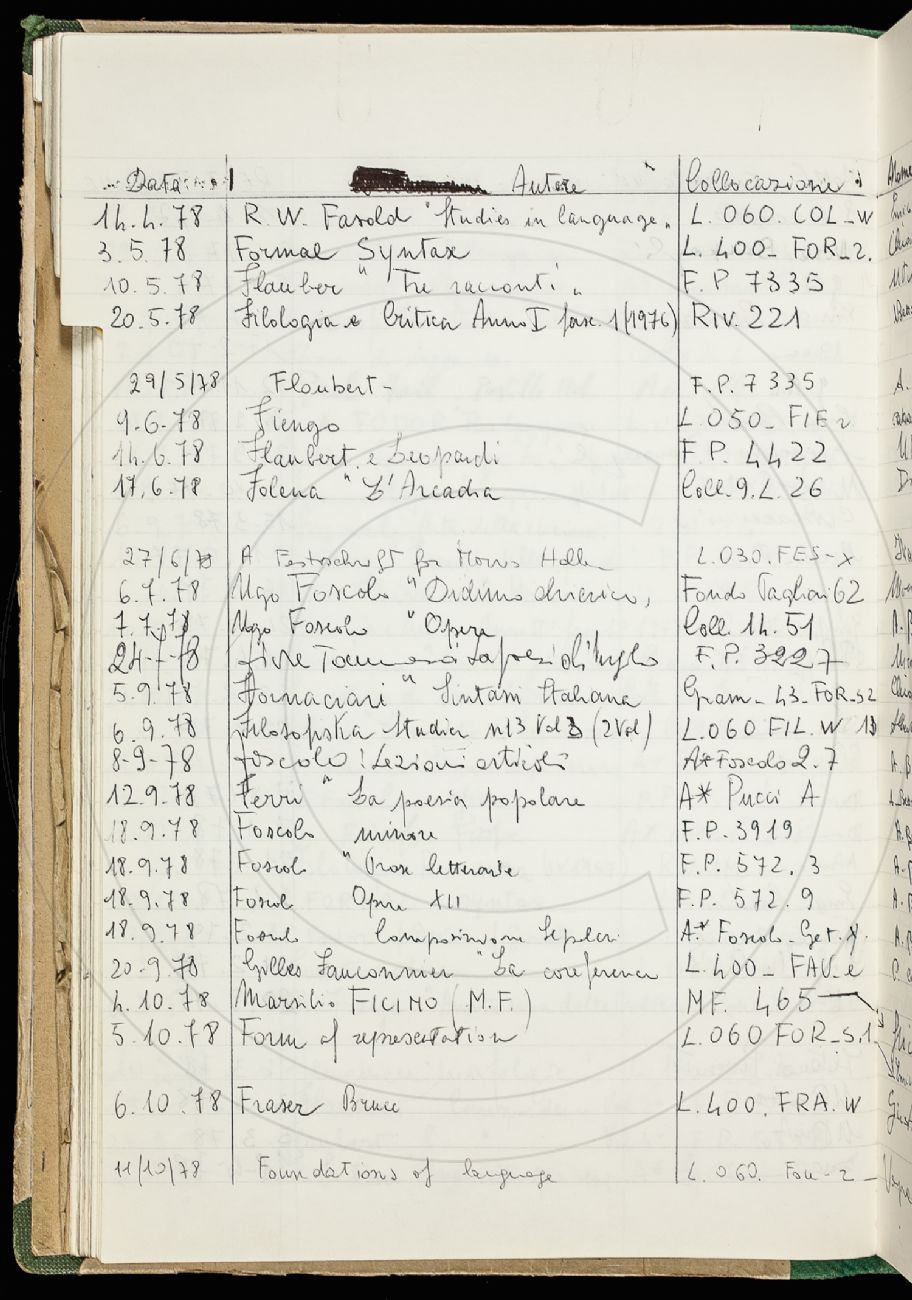 Data Autore Collocazione
14.4.78 R. W. Fasold "Studies in language" L. 060. COL-W
3.5.78 Formal Syntax L. 400- FOR-2.
10.5.78 Flauber "Tre racconti" F.P 7335
20.5.78 Filologia e Critica Anno I fasc. 1 (1976) RIV. 221
29/5/78 Flaubert- F.P. 7335
9.6.78 Fiengo L. 050- FIE 2
14.6.78 Flaubert e Leopardi F.P. 4422
17.6.78 Folena "L'Arcadia Coll. 9. L. 26
27/6/78 A Festschrift for Morris Halle L. 030. FES-X
6.7.78 Ugo Foscolo "Didimo chierico" Fondo Tagliavi 62
7.7.78 Ugo Foscolo "Opere Coll. 14. 51
24-7-78 Fiore Tommaso: La poesia di Virgilio F.P. 3227
5.9.78 Fornaciari "Sintassi Italiana Gram- 43- FOR-s2
6.9.78 Filosofska Studier n 13 Vol 3 (2 Vol) L. 060 FIL. W 13
8-9-78 Foscolo: Lezioni articoli A* Foscolo 2.7
12.9.78 Ferri "La poesia popolare A* Pucci A
18.9.78 Foscolo minore F.P. 3919
18.9.78 Foscolo "Prose letterarie F.P. 572. 3
18.9.78 Foscol Opere XII F.P. 572. 9
18.9.78 Foscolo Composizione Sepolcri A* Foscolo- Get. X.
20-9.78 Gilles Fauconnier "La coreference L. 400- FAU-e
4.10.78 Marsilio FICINO (M.F.) MF. 465
5.10.78 Form of representation L. 060 FOR-S.1
6.10.78 Fraser Bruce L. 400. FRA. W
11/10/78 Foundations of language L. 060. Fou-2-